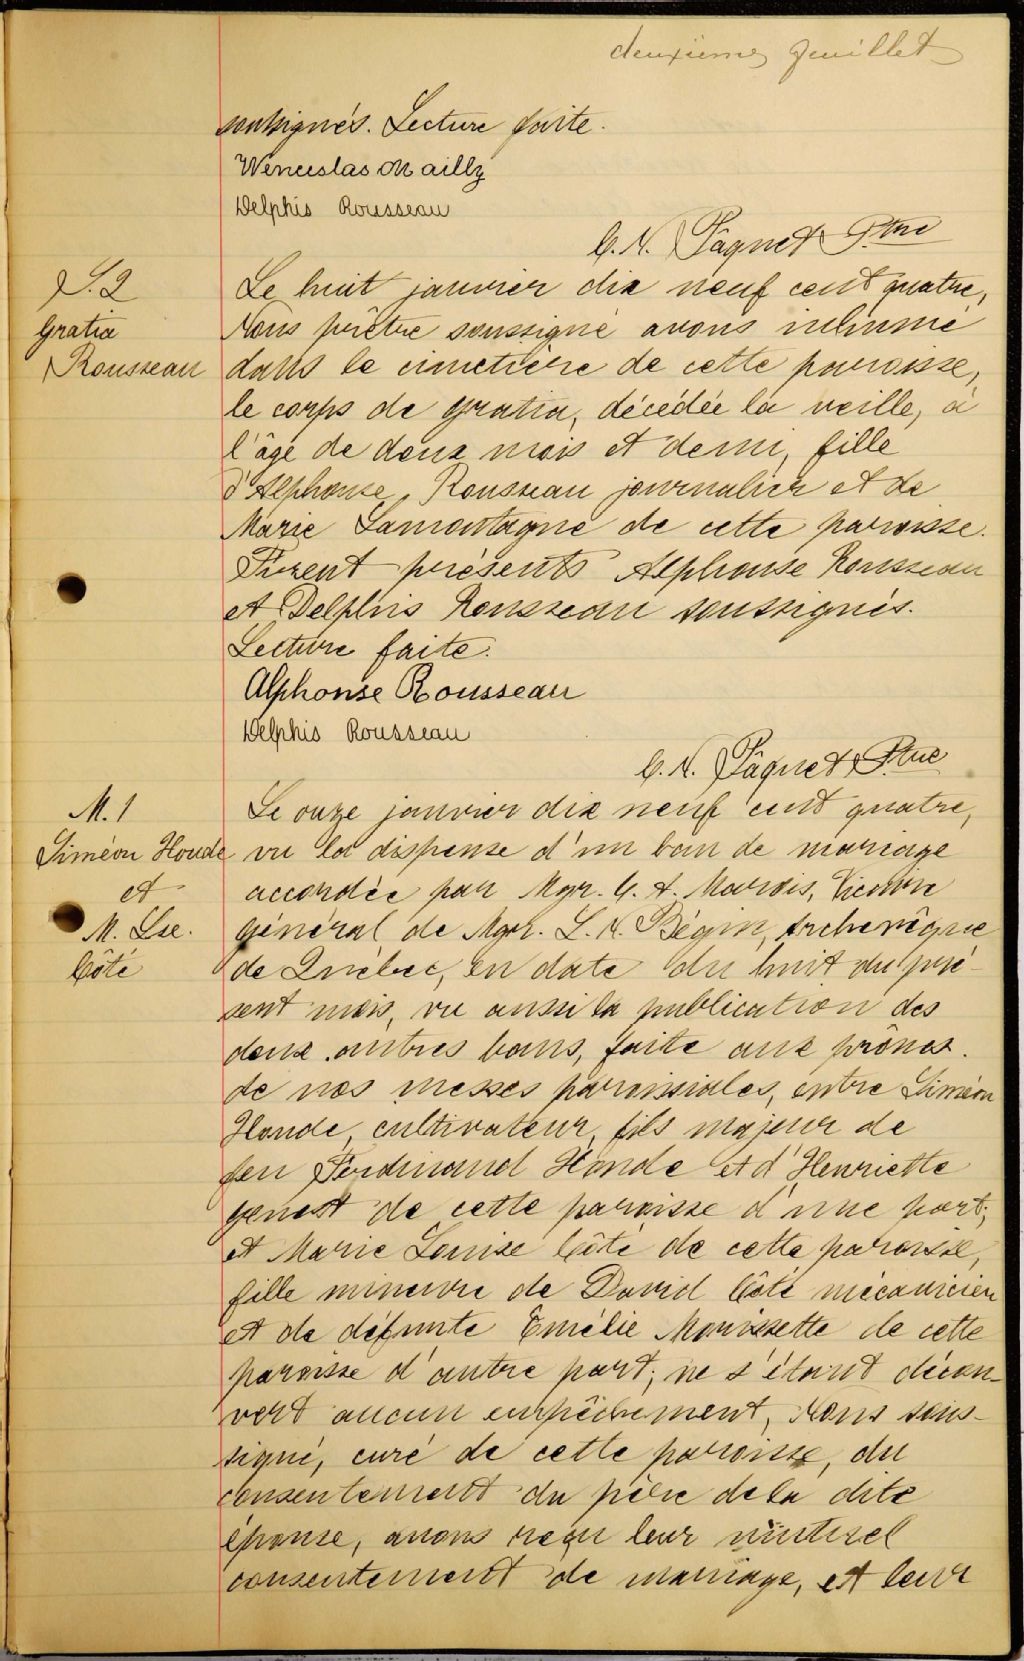 deuxième feuillet
soussignés. Lecture faite.
Wenceslas Mailly
Delphis Rousseau
C. N. Pâquet Ptre
S. 2
Gratia
Rousseau
Le huit janvier dix neuf cent quatre,
Nous prêtre soussigné avons inhumé
dans le cimetière de cette paroisse,
le corps de Gratia, décédée la veille, à
l'âge de deux mois et demi, fille
d'Alphonse Rousseau journalier et de
Marie Lamontagne de cette paroisse.
Furent présents Alphonse Rousseau
et Delphis Rousseau soussignés.
Lecture faite.
Alphonse Rousseau
Delphis Rousseau
C. N. Pâquet Ptre
M. 1
Siméon Houde
et
M. Lse.
Côté
Le onze janvier dix neuf cent quatre,
vu la dispense d'un ban de mariage
accordée par Mgr. C. A. Marois, Vicaire
général de Mgr. L. N. Bégin, Archevêque
de Québec, en date du huit du pré-
sent mois, vu aussi la publication des
deux autres bans, faite aux prônes
de nos messes paroissiales, entre Siméon
Houde, cultivateur, fils majeur de
feu Ferdinand Houde et d'Henriette
Genest de cette paroisse d'une part;
et Marie Louise Côté de cette paroisse,
fille mineure de David Côté mécanicien
et de défunte Emélie Morissette de cette
paroisse d'autre part; ne s'étant décou-
vert aucun empêchement, Nous sous-
signé, curé de cette paroisse, du
consentement du père de la dite
épouse, avons reçu leur mutuel
consentement de mariage, et leur